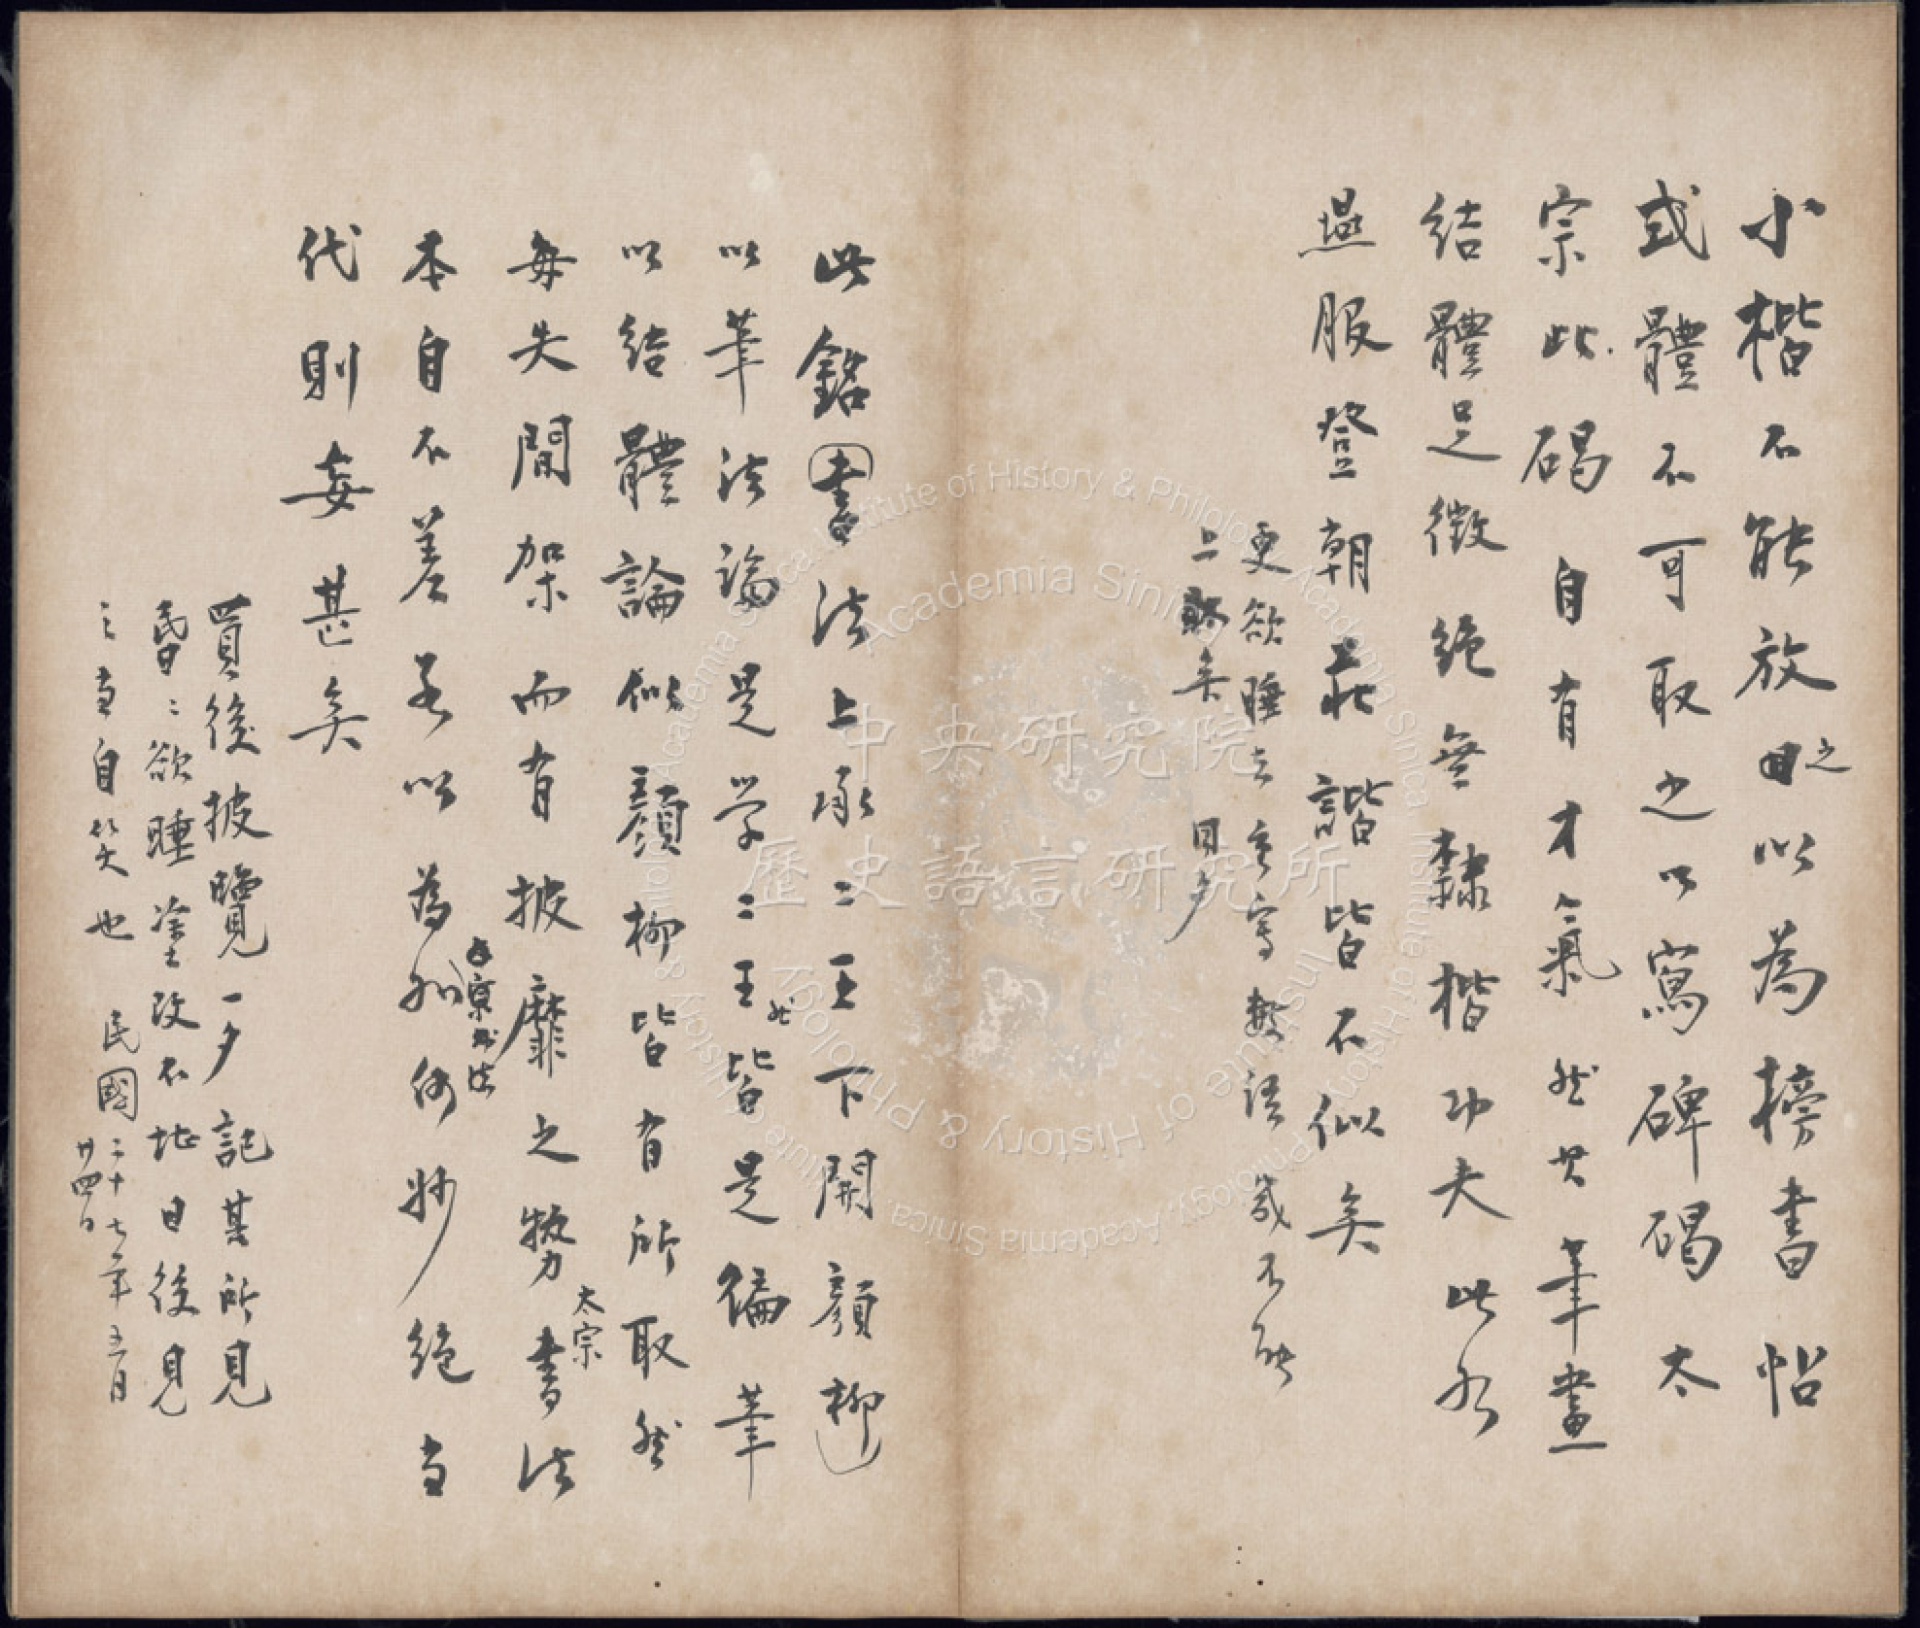 小楷不能放之以為榜書帖
或體不可取之以寫碑碣太
宗此碣自有才氣然其筆畫
結體足徵絕無隸楷功夫此如
燕服登朝莊諧皆不似矣
更欲睡去重寫數語幾不能
上聯矣 同夕
此銘書法上承二王下開顏柳
以筆法論是學二王然皆是偏筆
以結體論似顏柳皆有所取然
每失間架而有披靡之勢太宗書法
本自不差若以為妙絕當
代則妄甚矣
買後披覽一夕記其所見
昏昏欲睡塗改不堪日後見
之當自笑也 民國二十七年五月
廿四日
中央研究院
歷史語言研究所
Institute of History & Philology, Academia Sinica